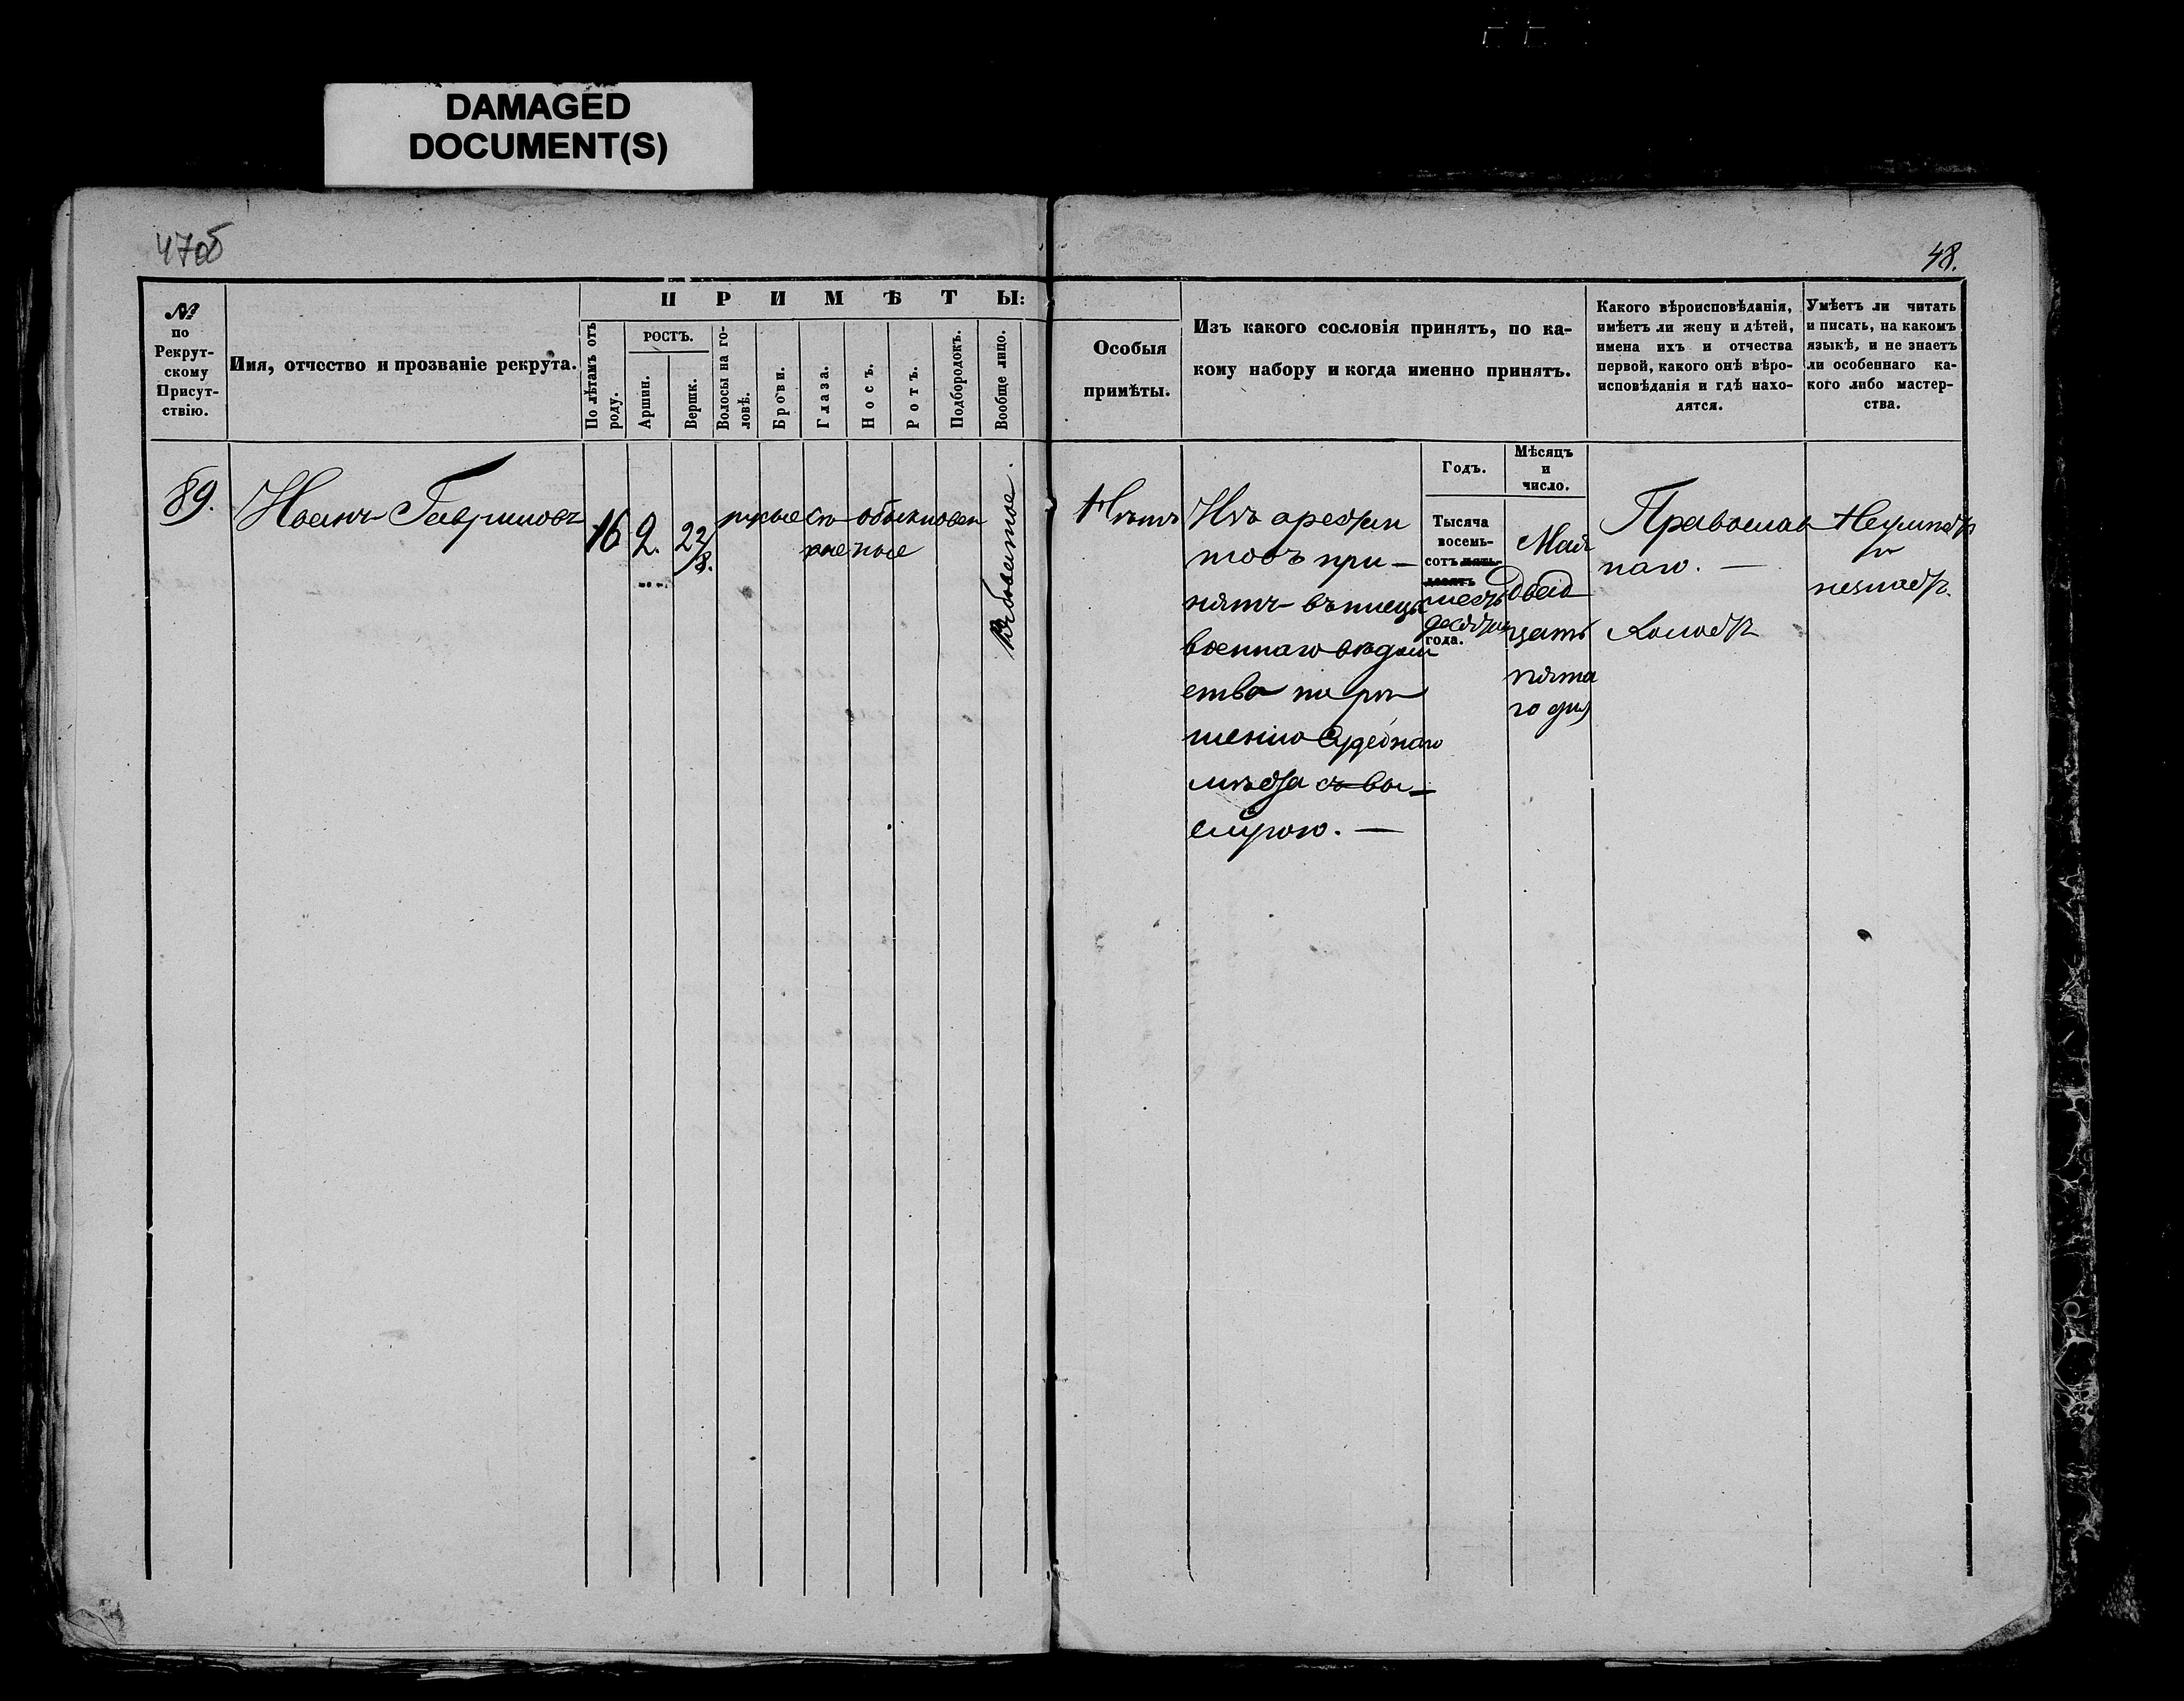 DAMAGED
DOCUMENT(S)
47об
48.
№
по
Рекрут-
скому
Присут-
ствію.
Имя, отчество и прозваніе рекрута.
ПРИМѢТЫ:
По лѣтамъ отъ
роду.
РОСТЪ.
Аршин.
Вершк.
Волосы на го-
ловѣ.
Брови.
Глаза.
Носъ.
Ротъ.
Подбородокъ.
Вообще лицо.
Особыя
примѣты.
Изъ какого сословія принятъ, по ка-
кому набору и когда именно принятъ.
Какого вѣроисповѣданія,
имѣетъ ли жену и дѣтей,
имена ихъ и отчества
первой, какого онѣ вѣро-
исповѣданія и гдѣ нахо-
дятся.
Умѣетъ ли читать
и писать, на какомъ
языкѣ, и не знаетъ
ли особеннаго ка-
кого либо мастер-
ства.
89.
Иванъ Гавриловъ
16
2.
2 2/8.
русые
сѣ-
рые
обыкновен
ные
Вѣсноватое.
Нѣтъ
Изъ арестан
товъ при-
нятъ въ писцы
военнаго вѣдом
ства по рѣ
шенію Суднаго
мѣста съ вы-
слугою. —
Годъ.
Тысяча
восемь-
сотъ пять-
десятъ
шесть
десятый
года.
Мѣсяцъ
и
число.
Мая
двад
цать
пята
го дня
Православ
наго. —
Холостъ
Неумѣетъ
и
незнаетъ.